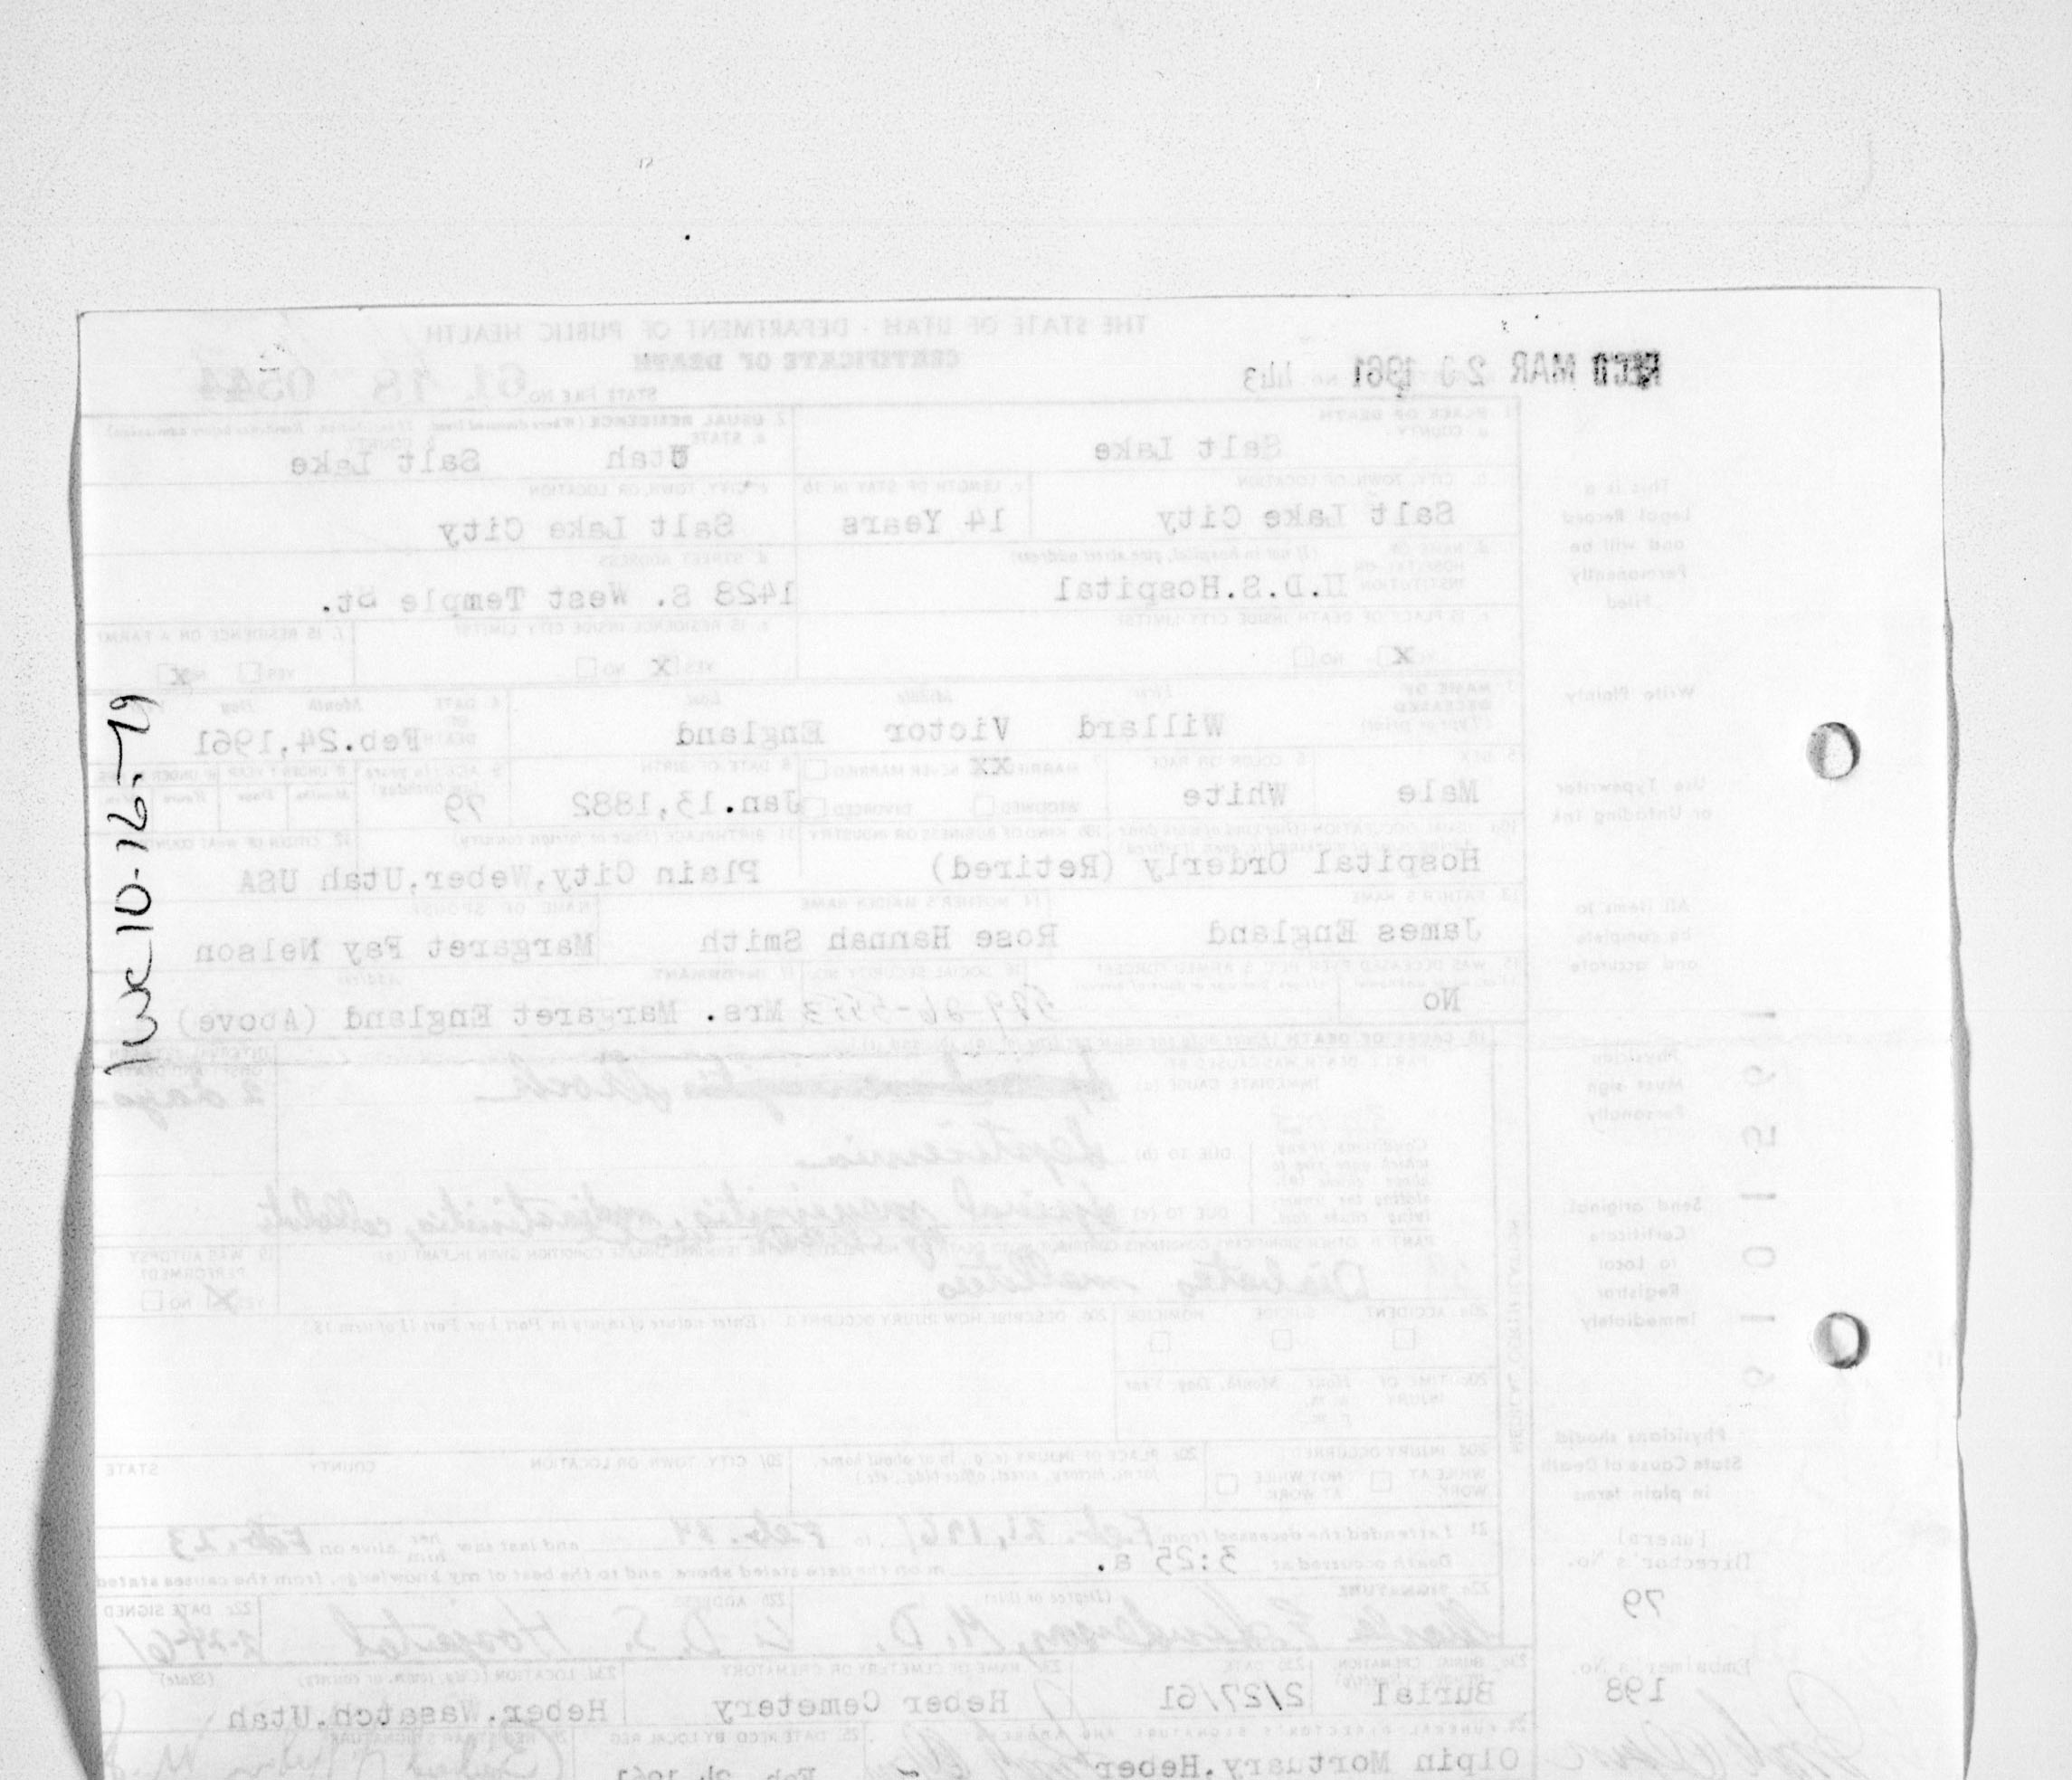 THE STATE OF UTAH - DEPARTMENT OF PUBLIC HEALTH
CERTIFICATE OF DEATH
REC'D MAR 20 1961
STATE FILE NO. 61 18 0544
1. PLACE OF DEATH
a. COUNTY
Salt Lake
2. USUAL RESIDENCE (Where deceased lived. If institution: Residence before admission)
a. STATE
Utah
b. COUNTY
Salt Lake
b. CITY, TOWN, OR LOCATION
Salt Lake City
c. LENGTH OF STAY IN 1b
14 Years
c. CITY, TOWN, OR LOCATION
Salt Lake City
d. NAME OF HOSPITAL OR INSTITUTION (If not in hospital, give street address)
L.D.S.Hospital
d. STREET ADDRESS
1428 S. West Temple St.
e. IS PLACE OF DEATH INSIDE CITY LIMITS?
YES X NO
e. IS RESIDENCE INSIDE CITY LIMITS?
YES X NO
f. IS RESIDENCE ON A FARM?
YES NO X
3. NAME OF DECEASED (Type or print)
First Middle Last
Willard Victor England
4. DATE OF DEATH
Month Day
Feb.24,1961
5. SEX
Male
6. COLOR OR RACE
White
7. MARRIED XX NEVER MARRIED
WIDOWED DIVORCED
8. DATE OF BIRTH
Jan.13,1882
9. AGE (In years last birthday)
79
IF UNDER 1 YEAR
Months Days Hours Min.
10a. USUAL OCCUPATION
Hospital Orderly (Retired)
10b. KIND OF BUSINESS OR INDUSTRY
11. BIRTHPLACE (State or foreign country)
Plain City,Weber,Utah
12. CITIZEN OF WHAT COUNTRY
USA
13. FATHER'S NAME
James England
14. MOTHER'S MAIDEN NAME
Rose Hannah Smith
NAME OF SPOUSE
Margaret Fay Nelson
15. WAS DECEASED EVER IN U. S. ARMED FORCES?
No
16. SOCIAL SECURITY NO.
17. INFORMANT
Address
Mrs. Margaret England (Above)
18. CAUSE OF DEATH
PART I. DEATH WAS CAUSED BY:
IMMEDIATE CAUSE (a)
2 days
ONSET AND DEATH
Conditions, if any, which gave rise to above cause (a), stating the underlying cause last.
DUE TO (b)
Septicemia
DUE TO (c)
PART II. OTHER SIGNIFICANT CONDITIONS
Diabetes mellitus
19. WAS AUTOPSY PERFORMED?
YES X NO
20a. ACCIDENT SUICIDE HOMICIDE
20b. DESCRIBE HOW INJURY OCCURRED (Enter nature of injury in Part I or Part II of item 18.)
20c. TIME OF INJURY Hour Month, Day, Year
20d. INJURY OCCURRED
WHILE AT WORK NOT WHILE AT WORK
20e. PLACE OF INJURY (e. g., in or about home, farm, factory, street, office bldg., etc.)
20f. CITY, TOWN, OR LOCATION COUNTY STATE
21. I attended the deceased from Feb. 21, 1961, to Feb. 24 and last saw her him alive on Feb. 23
Death occurred at 3:25 a. m on the date stated above, and to the best of my knowledge, from the causes stated
22a. SIGNATURE (Degree or title)
M.D.
22b. ADDRESS
L. D. S. Hospital
22c. DATE SIGNED
2-24-61
23a. BURIAL, CREMATION,
Burial
23b. DATE
2/27/61
23c. NAME OF CEMETERY OR CREMATORY
Heber Cemetery
23d. LOCATION (City, town, or county) (State)
Heber,Wasatch,Utah
24. FUNERAL DIRECTOR'S SIGNATURE AND ADDRESS
Olpin Mortuary,Heber
25. DATE RECD BY LOCAL REG.
26. REGISTRAR'S SIGNATURE
This is a
Legal Record
and will be
Permanently
Filed
Write Plainly
Use Typewriter
or Unfading Ink
All items to
be complete
and accurate
Physician
Must sign
Personally
Send original
Certificate
to Local
Registrar
Immediately
Physicians should
State Cause of Death
in plain terms
Funeral
Director's No.
79
Embalmer's No.
198
MEDICAL CERTIFICATION